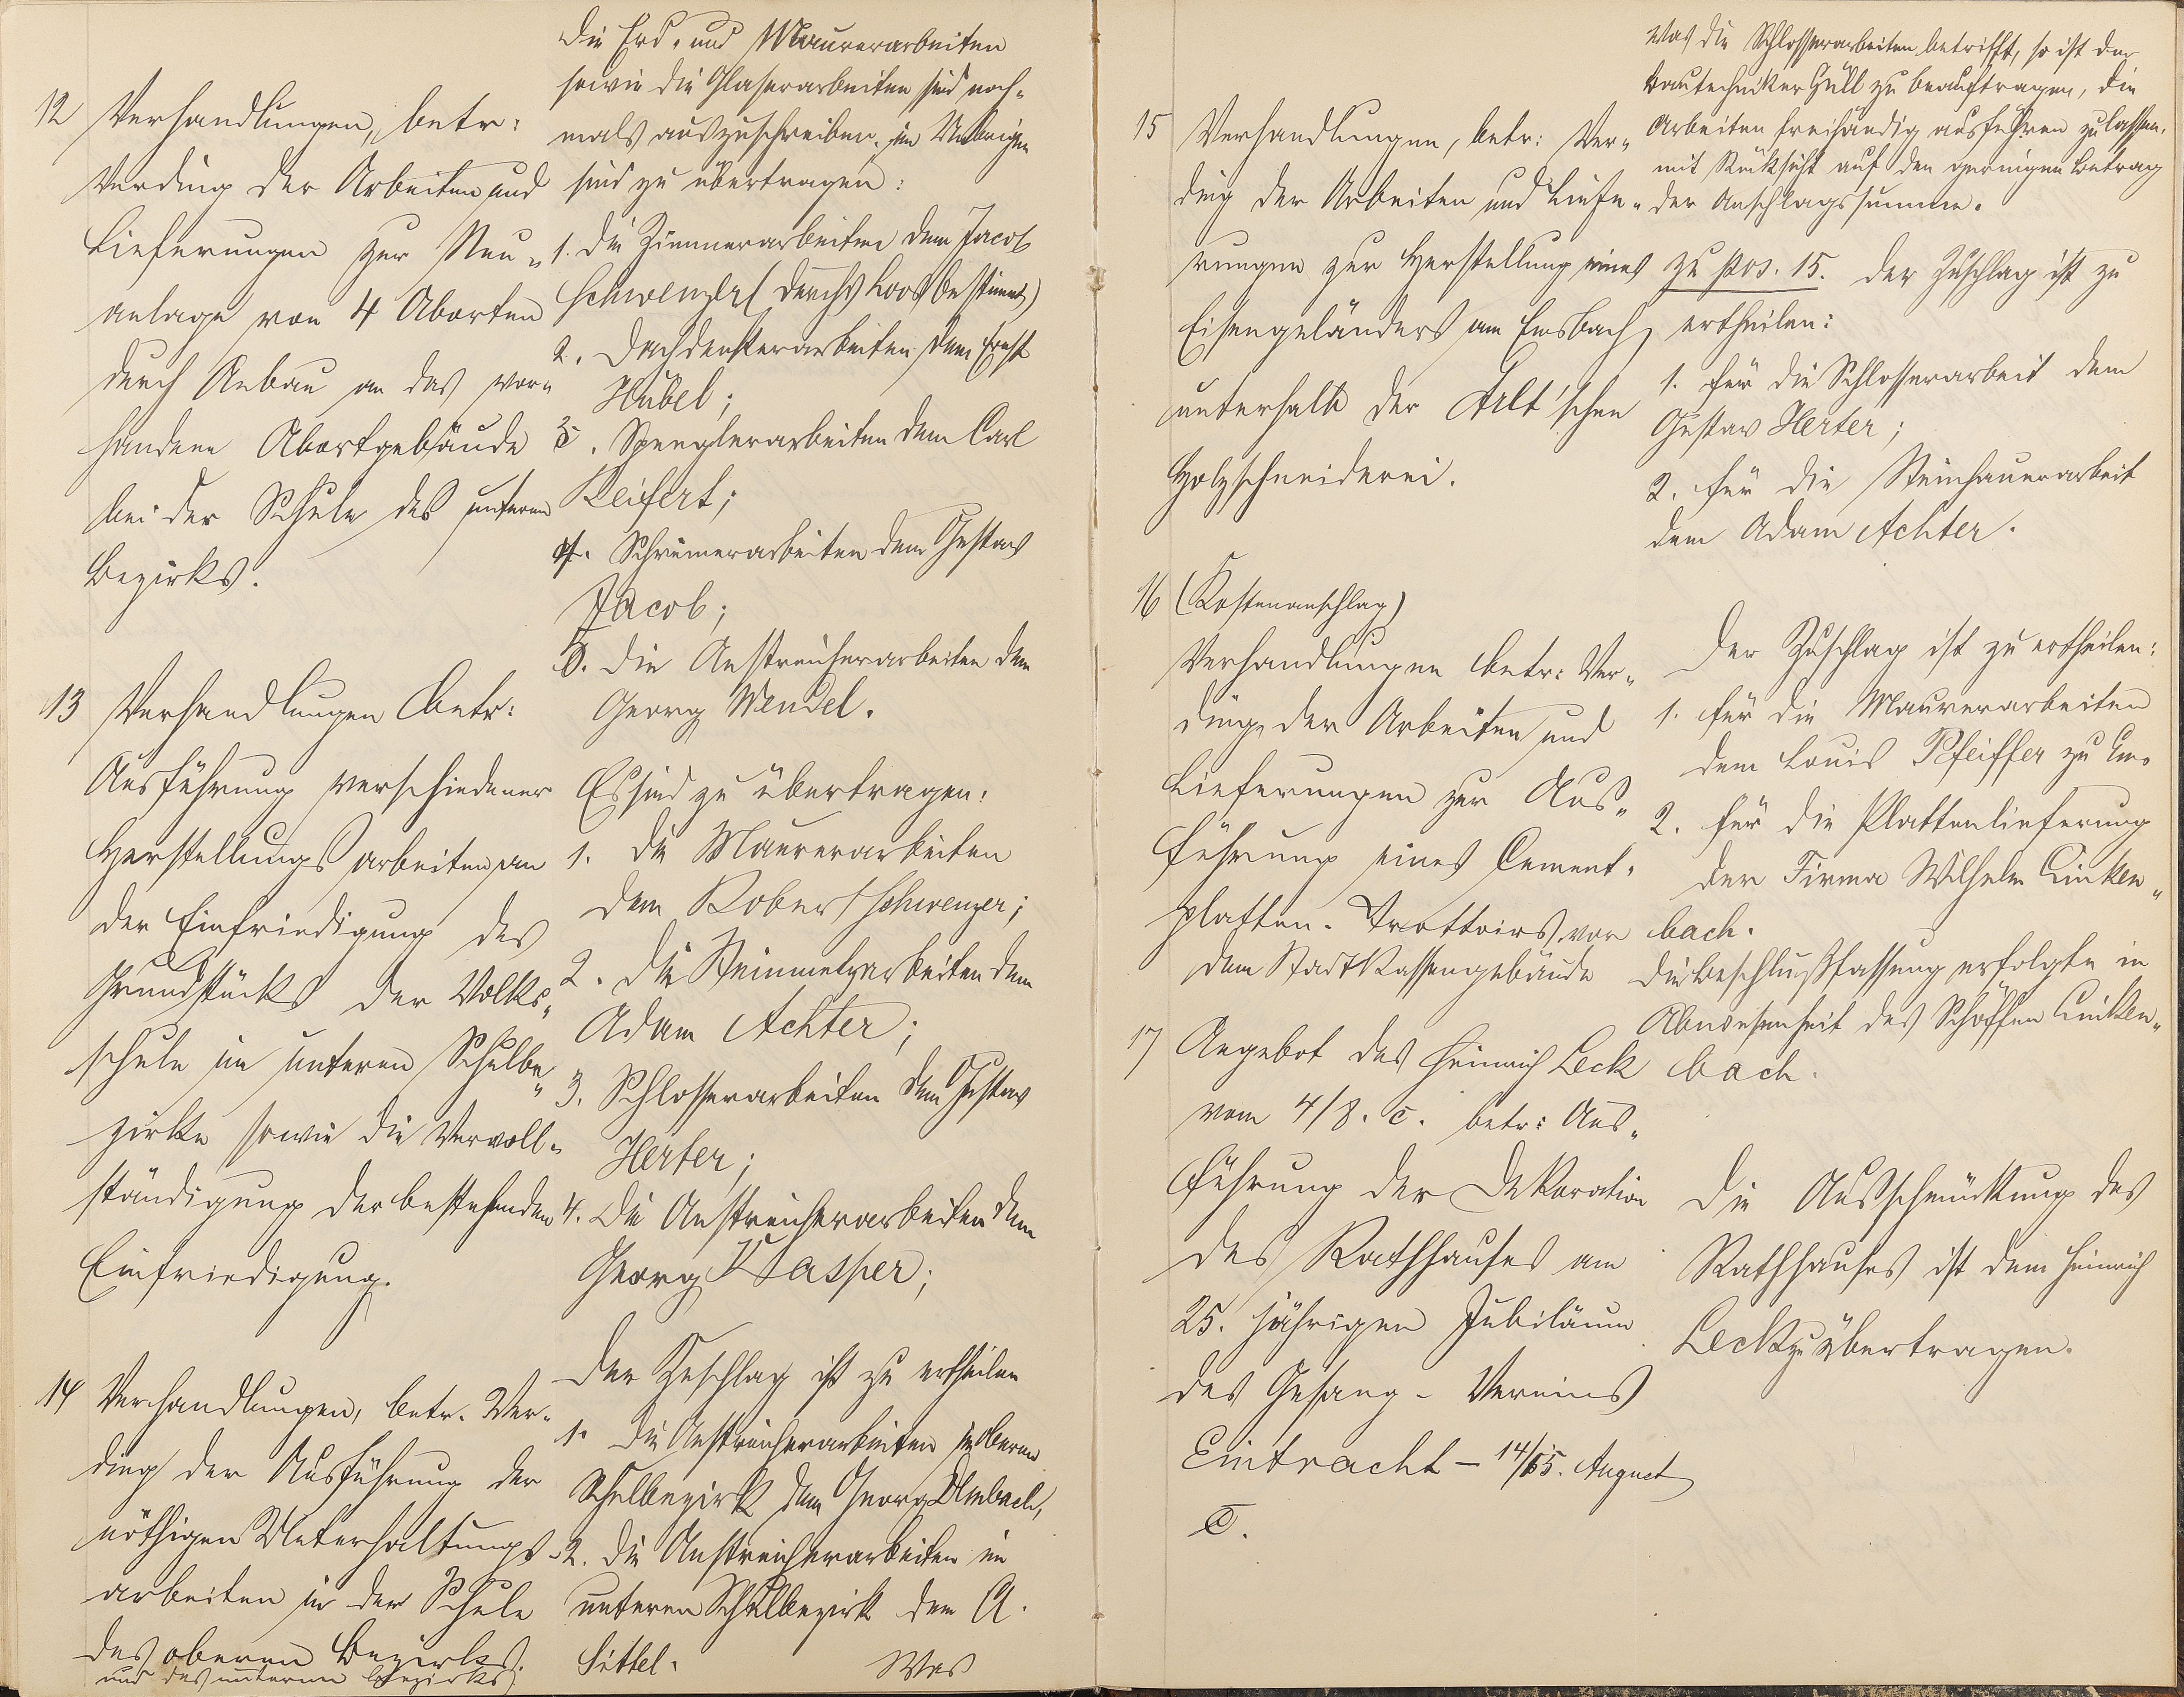 12 Verhandlungen, betr:
Verding der Arbeiten und
Lieferungen zur Neu-
anlage von 4 Aborten
durch Anbau an das vor-
handene Abortgebäude
bei der Schule des unteren
Bezirks.
Die Erd- und Maurerarbeiten
sowie die Glaserarbeiten sind noch-
mals auszuschreiben. im Uebrigen
sind zu übertragen:
1. Die Zimmerarbeiten dem Jacob
Schwenzer (durchs Loos bestimmt)
2. Dachdeckerarbeiten dem Ernst
Hübel;
3. Spenglerarbeiten dem Carl
Reifert;
4. Schreinerarbeiten dem Gustav
Jacob;
5. Die Anstreicherarbeiten dem
Georg Wendel.
13 Verhandlungen betr:
Ausführung verschiedener
Herstellungsarbeiten an
der Einfriedigung des
Grundstücks der Volks-
schule im unteren Schulbe-
zirke sowie die Vervoll-
ständigung der bestehenden
Einfriedigung.
Es sind zu übertragen:
1. die Maurerarbeiten
dem Robert Schwenzer;
2. die Steinmetzarbeiten dem
Adam Achter;
3. Schlosserarbeiten dem Gustav
Herter;
4. Die Anstreicherarbeiten dem
Georg Kasper;
14 Verhandlungen, betr. Ver-
ding der Ausführung der
nöthigen Unterhaltungs-
arbeiten in der Schule
des oberen Bezirks.
und des unteren Bezirks.
Der Zuschlag ist zu ertheilen
1. Die Anstreicherarbeiten im oberen
Schulbezirk dem Georg Umbach,
2. die Anstreicherarbeiten im
unteren Schulbezirk dem A.
Sittel.
Was
15 Verhandlungen, betr: Ver-
ding der Arbeiten und Liefe-
rungen zur Herstellung eines
Eisengeländers am Emsbach
unterhalb der Arlt'schen
Holzschneiderei.
Was die Schlosserarbeiten betrifft, so ist der
Bautechniker Hüll zu beauftragen, die
Arbeiten freihändig ausführen zu lassen.
mit Rücksicht auf den geringen Betrag
der Anschlagssumme.
zu pos. 15. Der Zuschlag ist zu
ertheilen:
1. für die Schlosserarbeit dem
Gustav Herter;
2. für die Steinhauerarbeit
dem Adam Achter.
16 (Kostenanschlag)
Verhandlungen betr: Ver-
ding der Arbeiten und
Lieferungen zur Aus-
führung eines Cement-
platten-Trottoirs vor
dem Stadtkassengebäude
Der Zuschlag ist zu ertheilen:
1. für die Maurerarbeiten
dem Louis Pfeiffer zu Ems
2. für die Plattenlieferung
der Firma Wilhelm Linken-
bach.
Die Beschlußfassung erfolgte in
Abwesenheit des Schöffen Linken-
bach.
17 Angebot des Heinrich Leck
vom 4/8. c. betr: Aus-
führung der Dekoration
des Rathhauses am
25. jährigen Jubiläum
des Gesang-Vereins
Eintracht - 14/15. August
c.
Die Ausschmückung des
Rathhauses ist dem Heinrich
Leck zu übertragen.